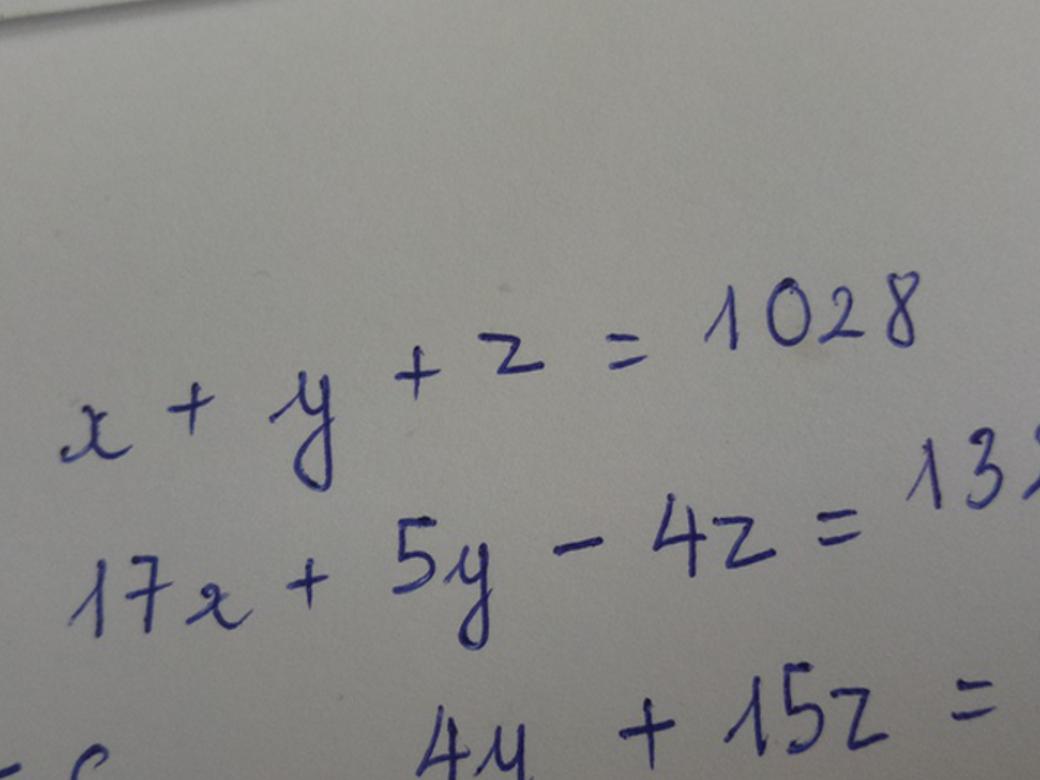 x + y + z = 1028
17x + 5y - 4z = 13
4y + 15z =